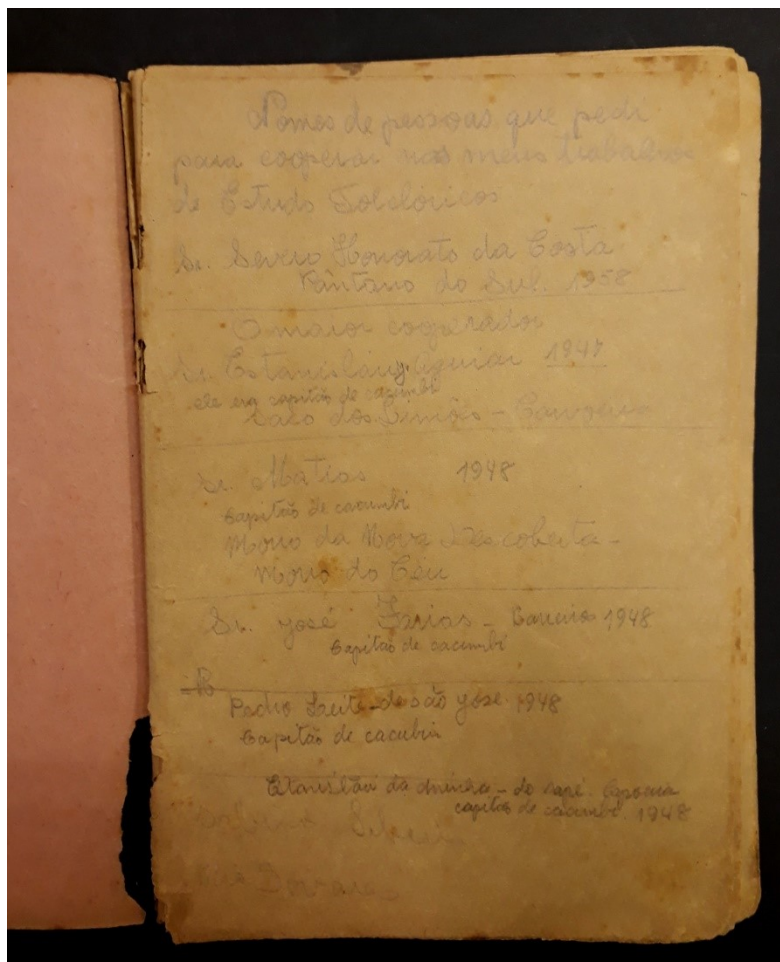 Nomes de pessoas que pedi
para cooperar nos meus trabalhos
de Estudo Folclóricos
Sr. Honorato da Costa
Pântano do Sul. 1958
O maior cooperador
Sr. Estanislau Aguiar 1947
ele era capitão de cacumbi
Saco dos Limões -
Sr. Matias 1948
Capitão de cacumbi
Morro da Nova Descoberta -
Morro do Céu
Sr. José Farias - 1948
Capitão de cacumbi
Pedro Leite - de são José. 1948
Capitão de cacubi
da - do 
capitão de cacumbi. 1948